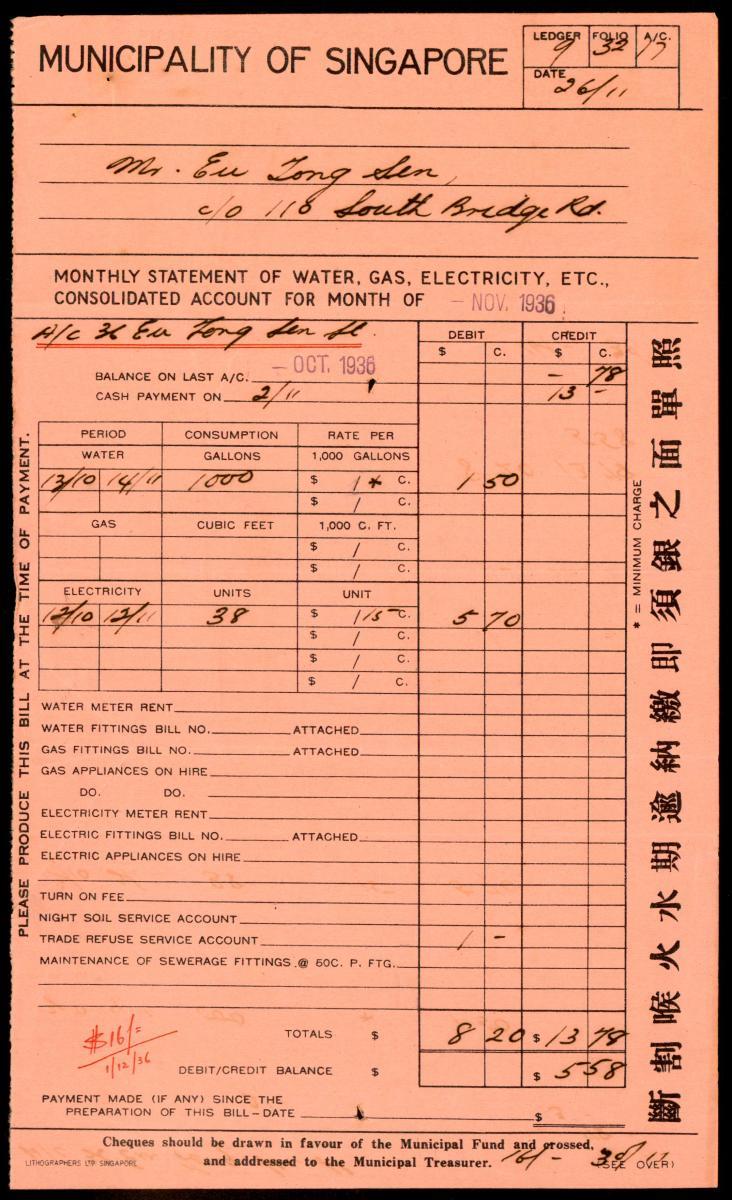 MUNICIPALITY OF SINGAPORE
LEDGER FOLIO A/C.
9 32 77
DATE 26/11
Mr. Eu Tong Sen,
c/o 118 South Bridge Rd.
MONTHLY STATEMENT OF WATER, GAS, ELECTRICITY, ETC.,
CONSOLIDATED ACCOUNT FOR MONTH OF - NOV. 1936
A/c 36 Eu Tong Sen St.
DEBIT CREDIT
$ C. $ C.
BALANCE ON LAST A/C. - OCT. 1936 - 78
CASH PAYMENT ON 2/11 13 -
PERIOD CONSUMPTION RATE PER
WATER GALLONS 1,000 GALLONS
13/10 14/11 1000 $ / * C. 1 50
$ / C.
GAS CUBIC FEET 1,000 C. FT.
$ / C.
$ / C.
ELECTRICITY UNITS UNIT
12/10 12/11 38 $ / 15 C. 5 70
$ / C.
$ / C.
$ / C.
WATER METER RENT
WATER FITTINGS BILL NO. ATTACHED
GAS FITTINGS BILL NO. ATTACHED
GAS APPLIANCES ON HIRE
DO. DO.
ELECTRICITY METER RENT
ELECTRIC FITTINGS BILL NO. ATTACHED
ELECTRIC APPLIANCES ON HIRE
TURN ON FEE
NIGHT SOIL SERVICE ACCOUNT
TRADE REFUSE SERVICE ACCOUNT 1 -
MAINTENANCE OF SEWERAGE FITTINGS @ 50C. P. FTG.
TOTALS $ 8 20 $ 13 78
$16/=
1/12/36
DEBIT/CREDIT BALANCE $ $ 5 58
PAYMENT MADE (IF ANY) SINCE THE
PREPARATION OF THIS BILL-DATE $
Cheques should be drawn in favour of the Municipal Fund and crossed,
and addressed to the Municipal Treasurer. 16/- (SEE OVER)
LITHOGRAPHERS LTD SINGAPORE
PLEASE PRODUCE THIS BILL AT THE TIME OF PAYMENT.
* = MINIMUM CHARGE
照單面之銀須即繳納逾期水火喉割斷